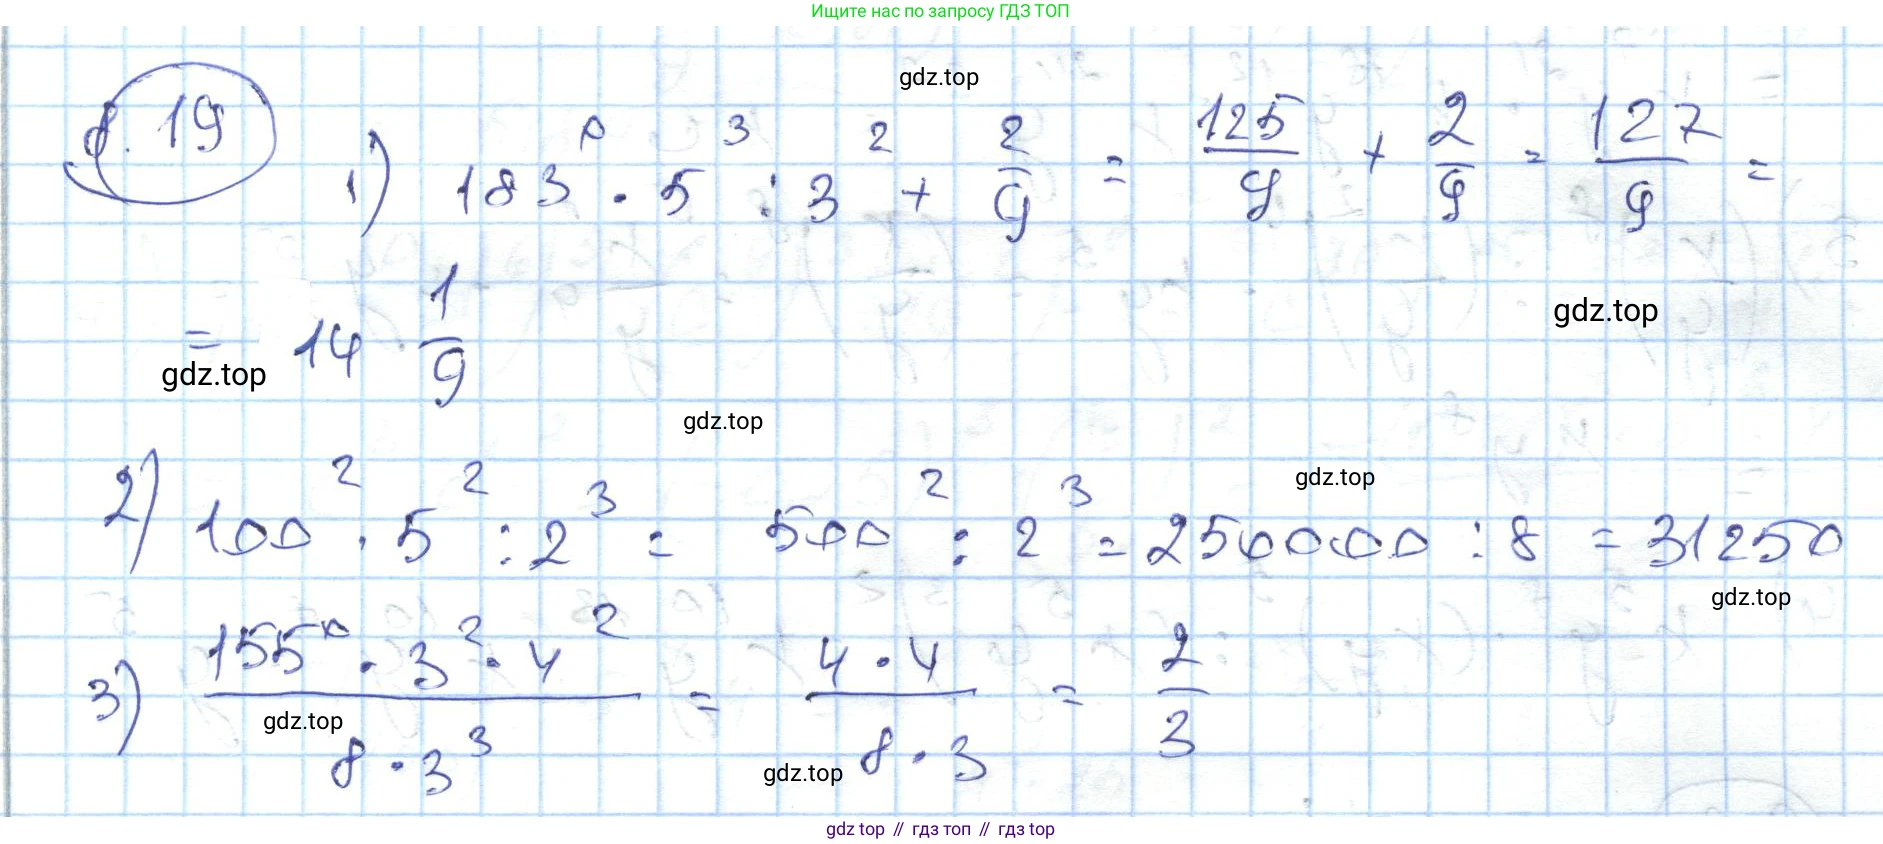 Ищите нас по запросу ГДЗ ТОП
gdz.top
8.19
1) 183⁰ · 5³ : 3² + 2/9 = 125/9 + 2/9 = 127/9 =
= 14 1/9
gdz.top
gdz.top
gdz.top
2) 100² · 5² : 2³ = 500² : 2³ = 250000 : 8 = 31250
gdz.top
gdz.top
3) (155⁰ · 3² · 4²)/(8 · 3³) = (4 · 4)/(8 · 3) = 2/3
gdz.top
gdz.top
gdz top // гдз топ // gdz top